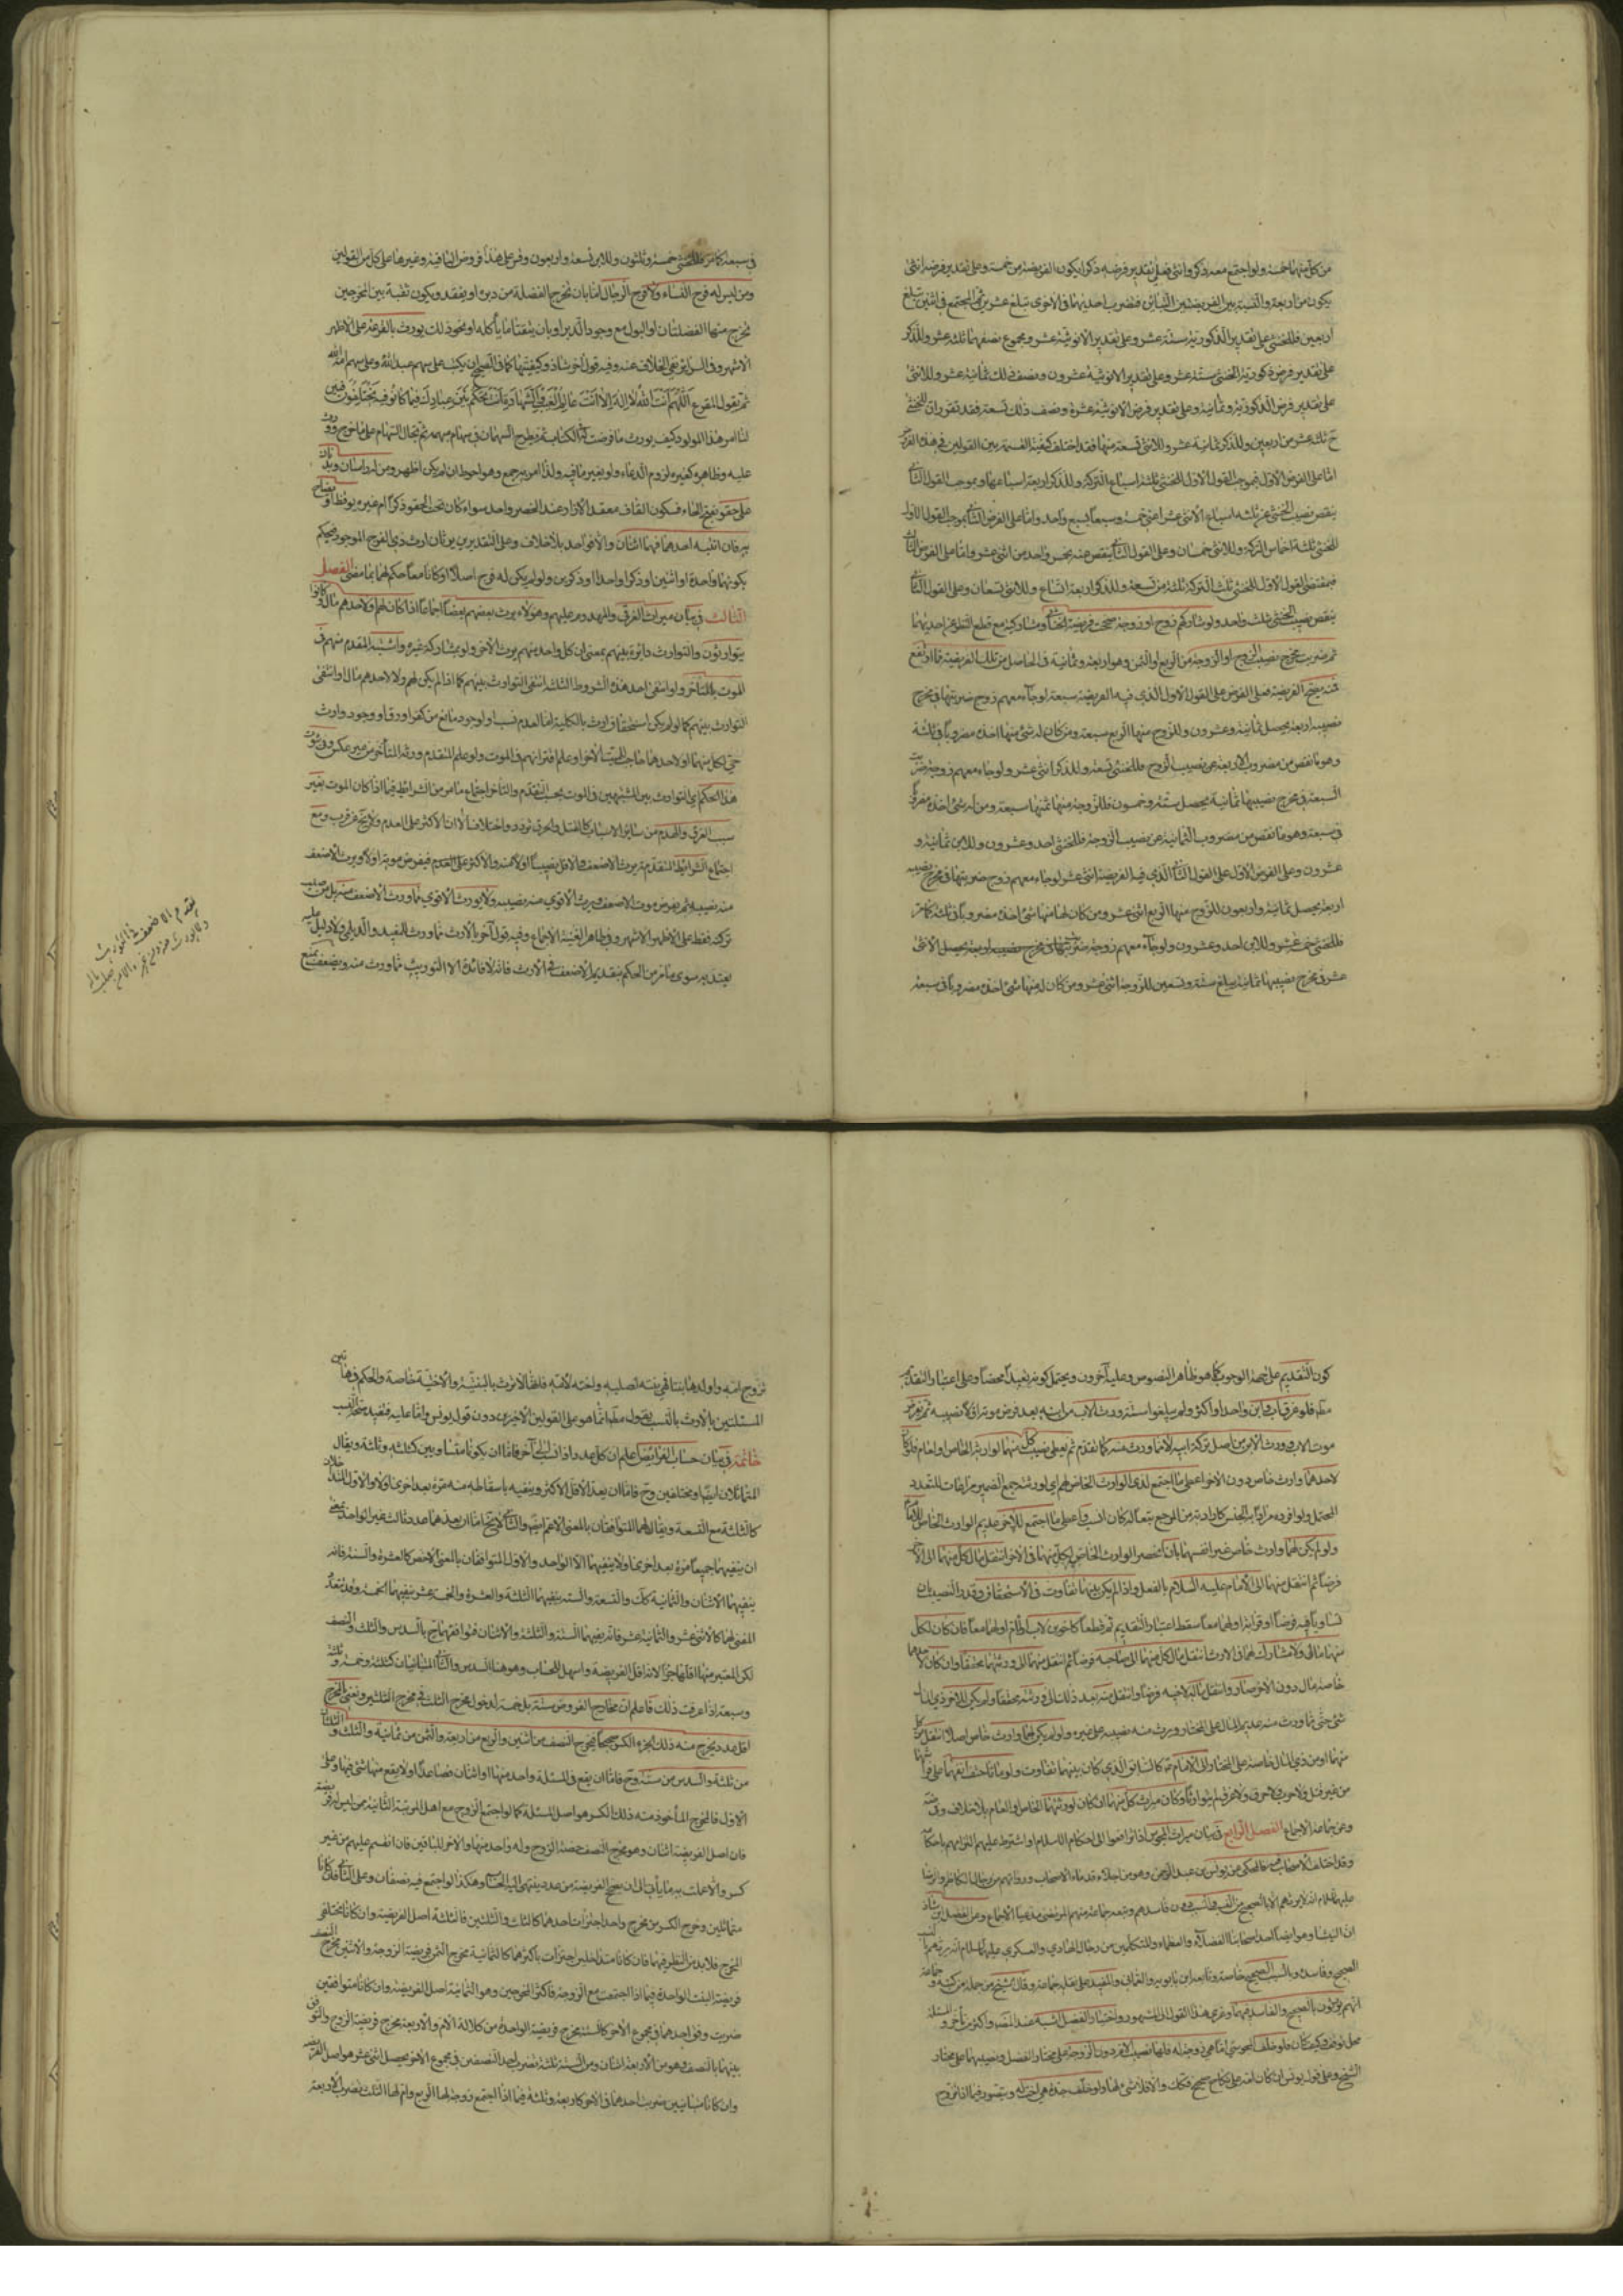 من كل منهما خمسة ولو اجتمع معه ذكر وانثى فعلى تقدير فرضه ذكرا يكون الفريضة من خمسة وعلى تقدير فرضه انثى
يكون من اربعة والنسبة بين الفريضتين التباين فنضرب احديهما في الاخرى تبلغ عشرين ثم المجتمع في اثنين تبلغ
اربعين فللخنثى على تقدير الذكورية ستة عشر وعلى تقدير الانوثية عشر ومجموع نصفهما ثلثة عشر وللذكر
على تقدير فرض ذكورية الخنثى ستة عشر وعلى تقدير الانوثية عشرون ونصف ذلك ثمانية عشر وللانثى
على تقدير فرض الذكورية وثمانية وعلى تقدير فرض الانوثية عشرة ونصف ذلك تسعة فقد تقرر ان للخنثى
ح ثلث عشر من اربعين وللذكر ثمانية عشر وللانثى تسعة منها فقد اختلف كيفية القسمة بين القولين في هذه
اما على الفرض الاول فبموجب القول الاول للخنثى ثلثة اسباع التركة وللذكر اربعة اسباعها وبموجب القول الثاني
ينقص نصيب الخنثى عن ثلثة اسباع الاثنى عشر اعني خمسة وسبعا بسبع واحد واما على الفرض الثاني فبموجب القول الاول
للخنثى ثلثة اخماس التركة وللانثى خمسان وعلى القول الثاني ينقص عنه بخمس واحد من اثنى عشر واما على الفرض الثالث
فبمقتضى القول الاول للخنثى ثلث التركة ثلثة من تسعة وللذكر اربعة اتساع وللانثى تسعان وعلى القول الثاني
ينقص نصيب الخنثى ثلث واحد ولو شاركهم زوج او زوجة صححت فريضة الخنثى ومشاركيه مع قطع النظر عن احديهما
ثم ضربت مخرج نصيب الزوج او الزوجة من الربع او الثمن وهو اربعة وثمانية في الحاصل من تلك الفريضة فما ارتفع
فمنه يصح الفريضة فعلى الفرض على القول الاول الذي فيه الفريضة سبعة لو جاء معهم زوج ضربتها في مخرج
نصيبه اربعة يحصل ثمانية وعشرون وللزوج منها الربع سبعة ومن كان له شئ منها اخذه مضروبا في ثلثة
وهو ما نقص من مضروب الاربعة عن نصيب الزوج فللخنثى تسعة وللذكر اثنى عشر ولو جاء معهم زوجة ضربت
السبعة في مخرج نصيبها ثمانية يحصل ستة وخمسون فللزوجة منها ثمنها سبعة ومن له شئ اخذه مضروبا
في سبعة وهو ما نقص من مضروب الثمانية عن نصيب الزوجة فللخنثى احد وعشرون وللابن ثمانية و
عشرون وعلى الفرض الاول على القول الثاني الذي فيه الفريضة اثنى عشر لو جاء معهم زوج ضربتها في مخرج نصيبه
اربعة يحصل ثمانية واربعون للزوج منها الربع اثنى عشر ومن كان له منها شئ اخذه مضروبا في ثلثة كما مر
فللخنثى خمسة عشر وللابن احد وعشرون ولو جاء معهم زوجة ضربتها في مخرج نصيب اربعة يحصل الاثنى
عشر في مخرج نصيبها ثمانية يبلغ ستة وتسعين للزوجة اثنى عشر ومن كان له منها شئ اخذه مضروبا في سبعة
في سبعة كما مر فللخنثى خمسة وثلثون وللابن تسعة واربعون وقس على هذا فروض الباقية وغيرها على كل من القولين
ومن ليس له فرج النساء ولا فرج الرجال اما بان تخرج الفضلة من دبره او يفقد ويكون ثقبة بين المخرجين
تخرج منها الفضلتان او البول مع وجود الدبر او بان يتقيا ما يأكله او نحو ذلك يورث بالقرعة على الاظهر
الاشهر وفي السرائر نفي الخلاف عنه وفيه قول اخر شاذ وكيفيتها كما في الصحيح ان يكتب على سهم عبد الله وعلى سهم امة الله
ثم يقول المقرع اللهم انت الله لا اله الا انت عالم الغيب والشهادة انت تحكم بين عبادك فيما كانوا فيه يختلفون فبين
لنا امر هذا المولود كيف يورث ما فرضت له في الكتاب ثم تطرح السهمان في سهام مبهمة ثم تجال السهام على ما خرج ورث
عليه وظاهره كغيره لزوم الدعاء ولو بغير ما فيه ولذا امر به جمع وهو احوط ان لم يكن اظهر ومن له راسان وبدنان
على حقو بفتح الحاء فسكون القاف معقد الازار عند الخصر واحد سواء كان تحت الحقو ذكرا ام غيره يوقظ او يصاح
به فان انتبه احدهما فهما اثنان والا فواحد بلا خلاف وعلى التقديرين يرثان ارث ذي الفرج الموجود فيحكم
بكونهما واحدة او اثنين او ذكرا واحدا او ذكرين ولو لم يكن له فرج اصلا او كانا معا حكم لهما بما مضى الفصل
الثالث في بيان ميراث الغرقى والمهدوم عليهم وهؤلاء يرث بعضهم بعضا اجماعا اذا كان لهم او لاحدهم مال وكانوا
يتوارثون والتوارث دائرة بينهم بمعنى ان كل واحد منهم يرث الاخر ولو بمشاركة غيره واشتبه المتقدم منهم في
الموت بالمتأخر ولو انتفى احد هذه الشروط الثلثة انتفى التوارث بينهم كما اذا لم يكن لهم ولا لاحدهم مال او انتفى
التوارث بينهم كما لو لم يكن استحقاق ارث بالكلية اما لعدم نسب او لوجود مانع من كفر او رق او وجود وارث
حي لكل منهما او لاحدهما حاجب للميت الاخر او علم اقترانهم في الموت ولو علم المتقدم ورثه المتأخر من غير عكس وفي ثبوت
هذا الحكم اي التوارث بين المشتبهين في الموت بحسب التقدم والتأخر اجتماع ما مر من الشرائط فيما اذا كان الموت بغير
سبب الغرق والهدم من سائر الاسباب كالقتل والحرق تردد واختلاف الا ان الاكثر على العدم ولا يخ عن قرب ومع
اجتماع الشرائط المتقدمة يورث الاضعف والاقل نصيبا اولا منه والاكثر على العدم فيفرض موته اولا ويرث الاضعف
منه نصيبه ثم يفرض موت الاضعف ويرث الاقوى منه نصيبه ولا يورث الاقوى مما ورث الاضعف منه بل من صلب
تركته فقط على الاظهر الاشهر وفي ظاهر الغنية الاجماع وفيه قول آخر بالارث مما ورث للمفيد والديلمي ولا دليل عليه
يعتد به سوى ما مر من الحكم بتقديم الاضعف في الارث فانه لا فائدة الا التوريث مما ورث منه ويضعف بمنع
تقدم الاضعف في التوريث
كون التقديم على جهة الوجوب كما هو ظاهر النصوص وعليه آخرون ويحتمل كونه تعبدا محضا وعلى اعتبار التقديم
مثله فلو غرق اب وابن واحدا او اكثر ولم يبلغوا ستة ورث الاب من ابنه بعد فرض موته اولا نصيبه ثم يفرض
موت الاب وورث الابن من اصل تركة ابيه لا مما ورث منه كما تقدم ثم يعطى نصيب كل منهما لوارثه الخاص او العام فلو كان
لاحدهما وارث خاص دون الاخر اعطي ما اجتمع لذي الوارث الخاص لهم اي لورثته جمع الضمير مراعات للتعدد
ولو لم يكن لهما وارث خاص غير انفسهما بان انحصر الوارث الخاص لكل منهما في الاخر انتقل مال كل منهما الى الاخر
فرضا ثم انتقل منهما الى الامام عليه السلام بالفعل واذا لم يكن بينهما تفاوت في الاستحقاق وقدر النصيب بان
تساويا فيه فرضا او قرابة او لهما معا سقط اعتبار التقديم ثم قطعا كاخوين لاب او لام او لهما معا فان كان لكل
منهما مال ولا مشارك لهما في الارث انتقل مال كل منهما الى صاحبه فرضا ثم انتقل منهما الى ورثتهما محققا وان كان لاحدهما
خاصة مال دون الاخر صار وانتقل ماله لاخيه فرضا وانتقل منه بعد ذلك الى ورثته محققا ولم يكن للاخر ذي المال
شئ حتى مما ورث منه عديم المال على المختار ويرث منه نصيبه على غيره ولو لم يكن لهما وارث خاص اصلا انتقل مال كل
منهما او من ذي المال خاصة على المختار الى الامام ثم كالسابق الذي كان بينهما تفاوت ولو ماتا حتف انفهما على فراشهما
من غير قتل ولا حرب ولا حرق ولا غرق لم يتوارثا وكان ميراث كل منهما ان كان لورثتهما الخاص او العام بلا خلاف وفي
وعن جماعة الاجماع الفصل الرابع في بيان ميراث المجوس اذا ترافعوا الى احكام الاسلام او اشترط عليهم التزامهم باحكامه
وقد اختلف الاصحاب فيه فالمحكي عن يونس بن عبد الرحمن وهو من اجلاء قدماء الاصحاب ورواتهم من رجال الكاظم والرضا
عليهما السلام انه لا يورثهم الا بالصحيح من النسب والسبب دون فاسدهم وتبعه جماعة منهم المرتضى مدعيا الاجماع وعن الفضل بن شاذان
النيشابوري وهو ايضا احد اصحابنا الفضلاء والعظماء والمتكلمين من رجال الهادي والعسكري عليهما السلام انه يورثهم بالنسب
الصحيح وفاسده وبالسبب الصحيح خاصة وتابعه ابن بابويه والعماني والمفيد على نقل جماعة وقال الشيخ في جملة من كتبه وجماعة
انهم يورثون بالصحيح والفاسد فيهما وعزى هذا القول الى المشهور واختيار الفضل اشبه عند المصنف واكثر من تأخر والمسئلة
محل توقف وكيف كان فلو خلف المجوسي اما هي زوجته فلها نصيب الام دون الزوجة على مختار الفضل ونصيبهما على مختار
الشيخ وعلى قول يونس ان كان امه على نكاح صحيح فكذلك والا فلا شئ لها ولو خلف جدة هي اخت له ويتصور فيما اذا تزوج
تزوج امه واولدها بنتا فهي بنته لصلبه واخته لامه فلها الارث بالبنتية والاختية خاصة والحكم في هاتين
المسئلتين بالارث بالنسب يعول عليه انما هو على القولين الاخرين دون قول يونس
خاتمة في بيان حساب الفرائض اعلم ان كل عددا اذا نسب الى آخر فاما ان يكونا متساويين كثلثة وثلثة ويقال
المتماثلان ايضا او مختلفين وح فاما ان يعد الاقل الاكثر ويفنيه باسقاطه منه مرة بعد اخرى او لا والاول المتداخلان
كالثلثة مع التسعة ويقال لهما المتوافقان بالمعنى الاعم ايضا والثاني لا يخ اما ان يعدهما عدد ثالث غير الواحد بمعنى
ان يفنيهما جميعا مرة بعد اخرى او لا يفنيهما الا الواحد والاول المتوافقان بالمعنى الاخص كالعشرة والستة فانه
يفنيهما الاثنان والثمانية كك والتسعة والستة يفنيهما الثلثة والعشرة والخمسة عشر يفنيهما الخمسة وقد يتعدد
المفني لهما كالاثنى عشر والثمانية عشر فانه يفنيهما الستة والثلثة والاثنان فتوافقهما ح بالسدس والثلث والنصف
لكن المعتبر منها اقلها جزءا لانه اقل الفريضة واسهل للحساب وهو هنا السدس والثاني المتباينان كثلثة وخمسة وثلثة
وسبعة اذا عرفت ذلك فاعلم ان مخارج الفروض ستة بل خمسة لدخول مخرج الثلث في مخرج الثلثين ونعني بالمخرج
اقل عدد يخرج منه ذلك الجزء الكسر صحيحا فمخرج النصف من اثنين والربع من اربعة والثمن من ثمانية والثلث والثلثان
من ثلثة والسدس من ستة وح فاما ان يقع في المسئلة واحد منها او اثنان فصاعدا او لا يقع منها شئ فيها وعلى
الاول فالمخرج المأخوذ منه ذلك الكسر هو اصل المسئلة كما لو اجتمع الزوج مع اهل المرتبة الثانية ممن ليس له فريضة
فان اصل الفريضة اثنان وهو مخرج النصف حصة الزوج وله واحد منهما والاخر للباقين فان انقسم عليهم من غير
كسر والا عملت به ما يأتي الى ان يصح الفريضة من عدد ينتهي اليه الحساب وهكذا لو اجتمع فيه نصفان وعلى الثاني فان كانا
متماثلين وخرج الكسر من مخرج واحد اجتزأت باحدهما كالثلث والثلثين فالثلثة اصل الفريضة وان كانا مختلفي
المخرج فلا بد من النظر فيهما فان كانا متداخلين اجتزأت باكثرهما كالثمانية مخرج الثمن فريضة الزوجة والاثنين مخرج النصف
فريضة البنت الواحدة فيما اذا اجتمعت مع الزوجة فاكثر المخرجين وهو الثمانية اصل الفريضة وان كانا متوافقين
ضربت وفق احدهما في مجموع الاخر كالستة مخرج فريضة الواحدة من كلالة الام والاربعة مخرج فريضة الزوج والتوافق
بينهما بالنصف وهو من الاربعة اثنان ومن الستة ثلثة تضرب احد النصفين في مجموع الاخر يحصل اثنى عشر هو اصل الفريضة
وان كانا متباينين ضربت احدهما في الاخر كاربعة وثلثة فيما اذا اجتمع زوجة لها الربع وام لها الثلث تضرب الاربعة